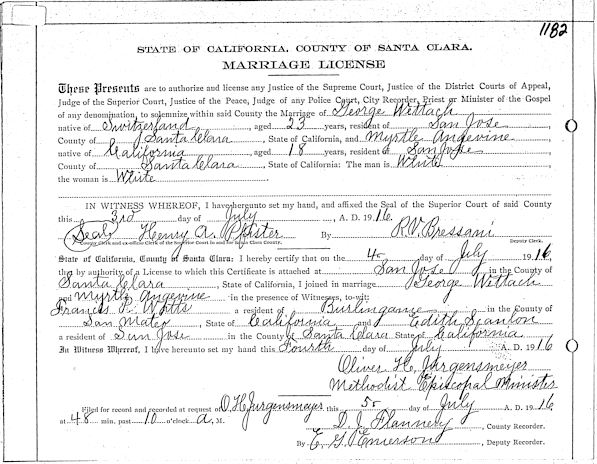 1182
STATE OF CALIFORNIA, COUNTY OF SANTA CLARA.
MARRIAGE LICENSE
These Presents are to authorize and license any Justice of the Supreme Court, Justice of the District Courts of Appeal,
Judge of the Superior Court, Justice of the Peace, Judge of any Police Court, City Recorder, Priest or Minister of the Gospel
of any denomination, to solemnize within said County the Marriage of George Wittach
native of Switzerland, aged 23 years, resident of San Jose
County of Santa Clara, State of California, and Myrtle Angevine
native of California, aged 18 years, resident of San Jose
County of Santa Clara, State of California: The man is White
the woman is White
IN WITNESS WHEREOF, I have hereunto set my hand, and affixed the Seal of the Superior Court of said County
this 3rd day of July, A. D. 1916.
(Seal) Henry A. Pfister By R.V. Bressani
County Clerk and ex-officio Clerk of the Superior Court in and for Santa Clara County. Deputy Clerk.
State of California, County of Santa Clara: I hereby certify that on the 4 day of July 1916,
that by authority of a License to which this Certificate is attached at San Jose in the County of
Santa Clara, State of California, I joined in marriage George Wittach
and Myrtle Angevine in the presence of Witnesses, to-wit:
Francis P. Watts a resident of Burlingame in the County of
San Mateo, State of California and Edith Scanlon
a resident of San Jose in the County of Santa Clara State of California
In Witness Whereof, I have hereunto set my hand this Fourth day of July A. D. 1916
Oliver H. Jurgensmeyer
Methodist Episcopal Minister
Filed for record and recorded at request of O.H. Jurgensmeyer this 5 day of July A. D. 1916
at 48 min. past 10 o'clock A. M. D. J. Flannery, County Recorder.
By E. G. Emerson, Deputy Recorder.